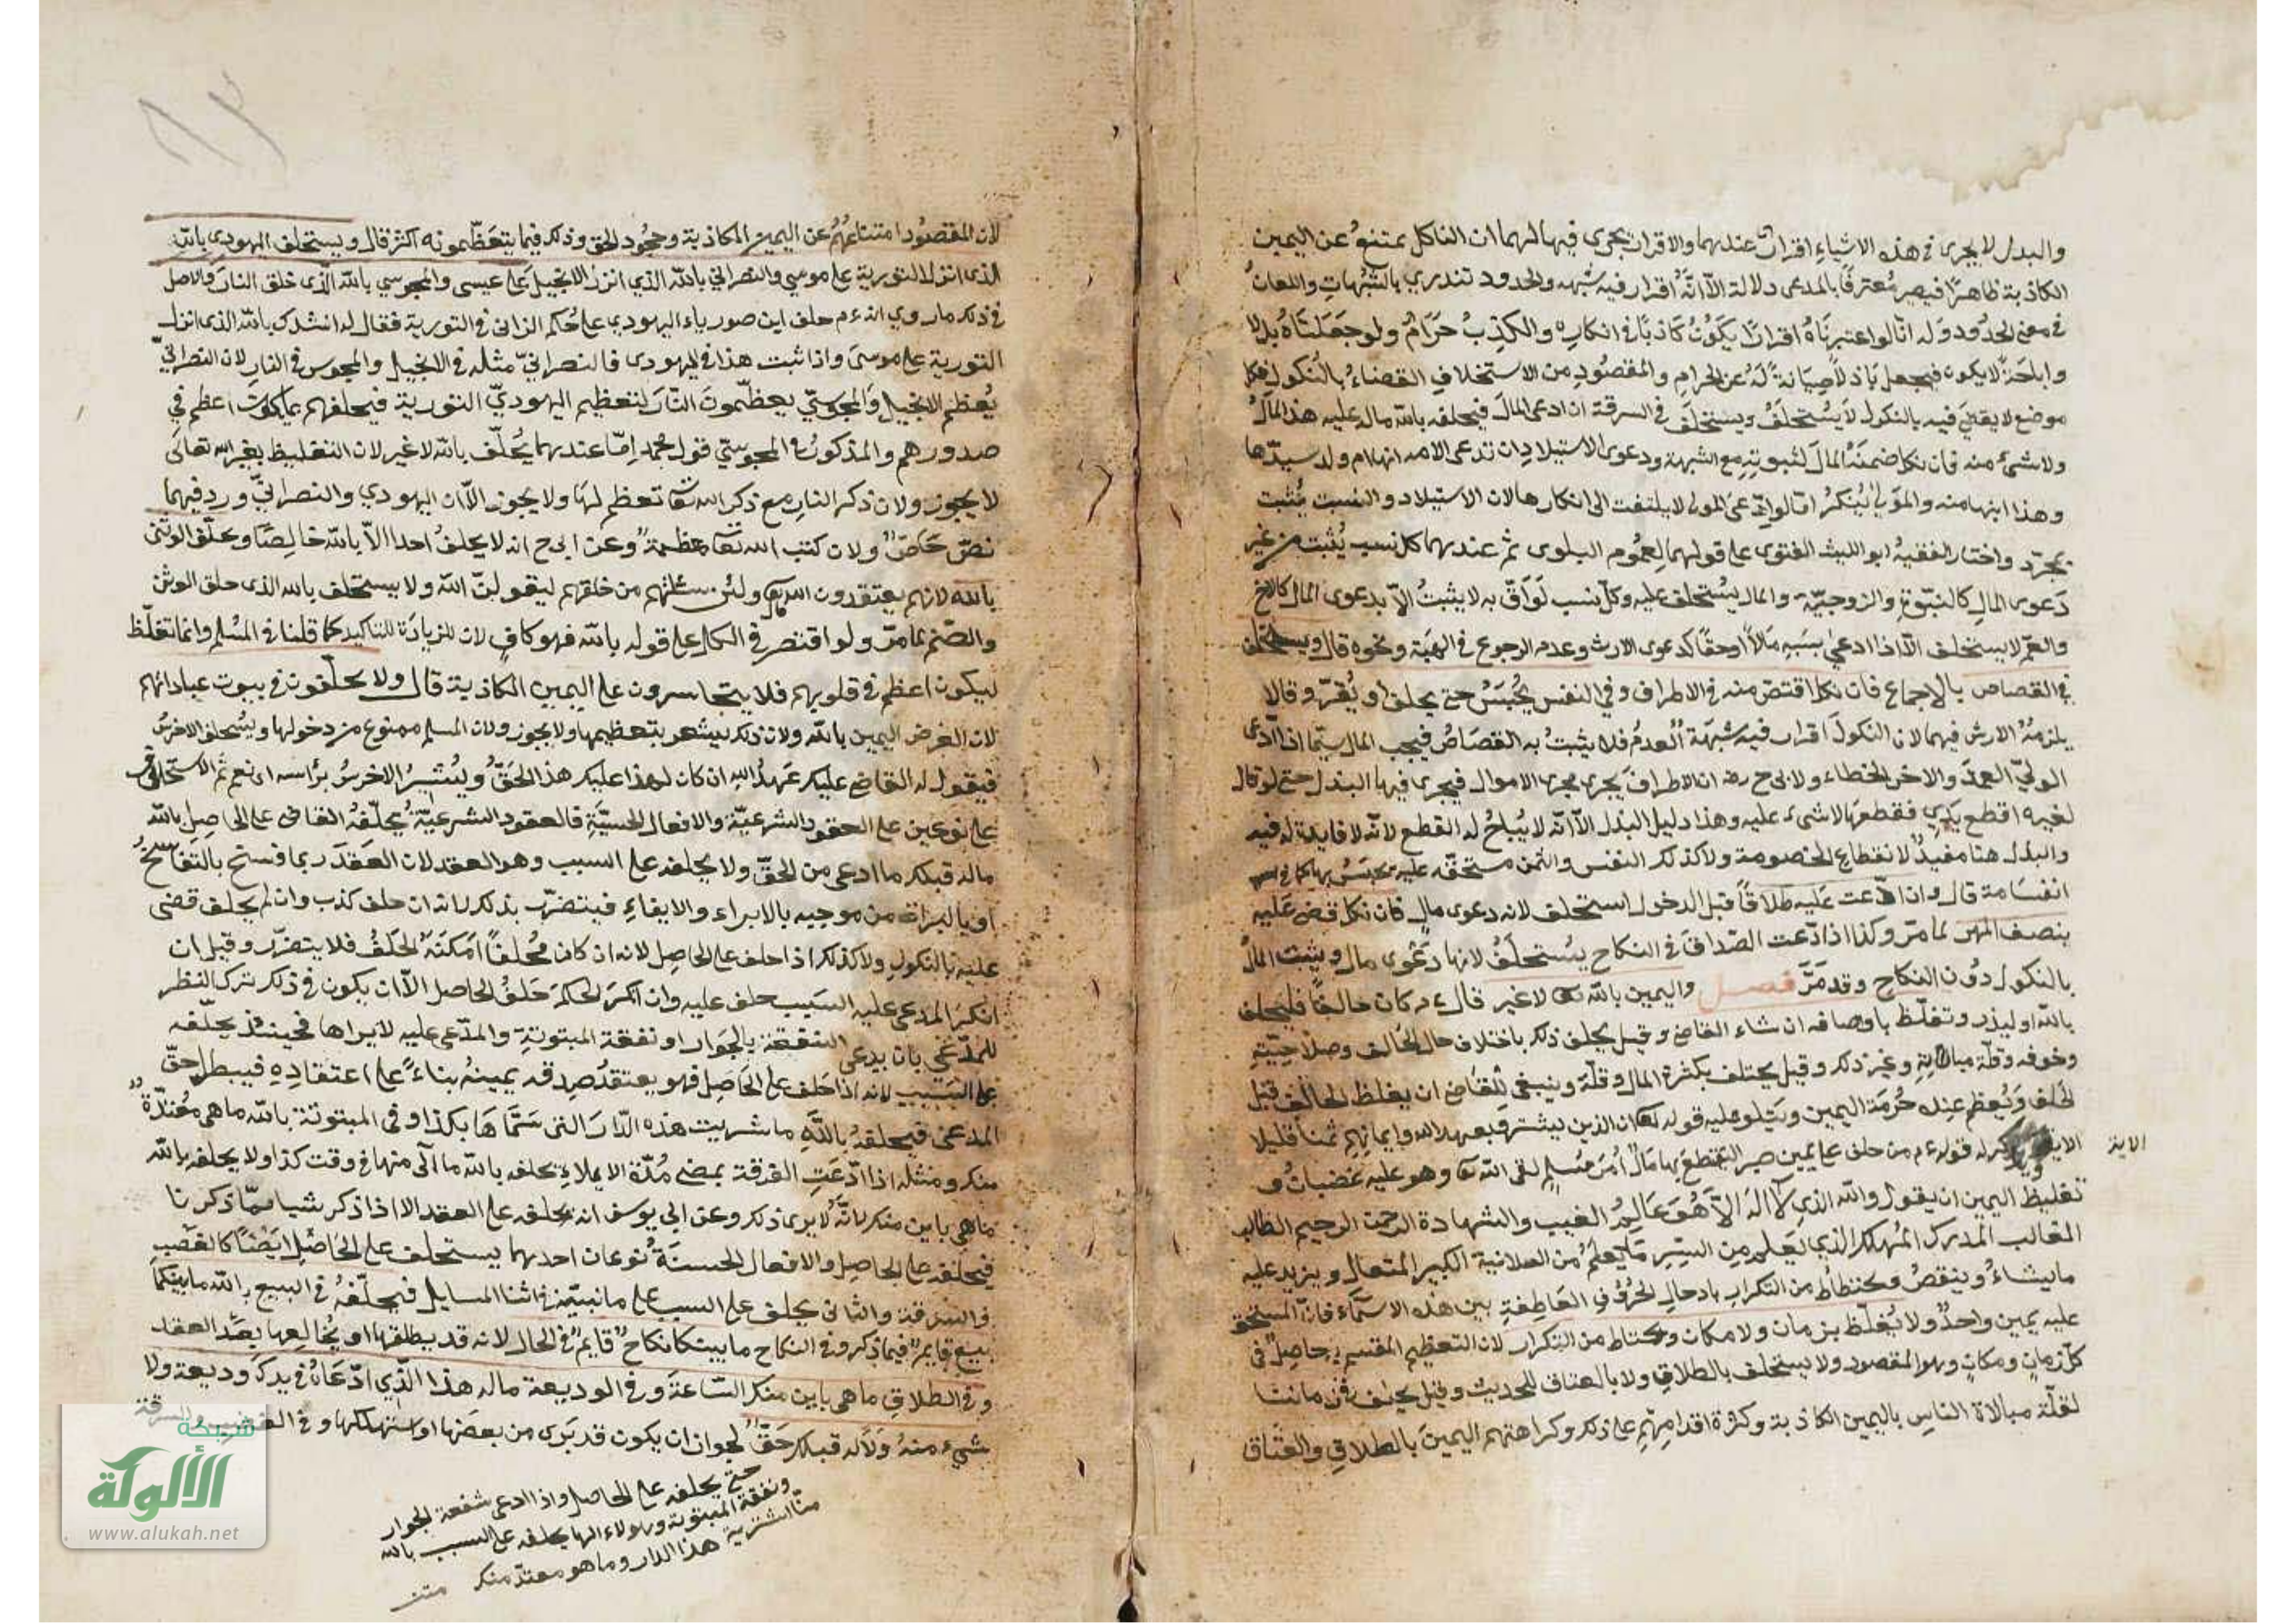 والبدل لا يجرى فى هذه الاشياء اقرار عندهما والاقرار يجرى فيها لهما ان الناكل ممتنع عن اليمين
الكاذبة ظاهرًا فيصير مُعترفًا بالمدعى دلالة الّا انّه اقرار فيه شبهه والحدود تندرئ بالشبهات واللعان
فى معنى الحدود وله انّا لو اعتبرناهُ اقرارًا يكونُ كاذبًا فى انكاره والكذبُ حَرَامٌ ولو جَعَلناهُ بدلا
واباحةً لا يكون فيجعل باذلًا صِيَانةً لَهُ عن الحرام والمقصُودِ من الاستحلاف القضاءُ بالنكول فكل
موضع لا يقضى فيه بالنكول لا يُستحلَفُ ويستحلف فى السرقة ان ادعى المالَ فيحلفه بالله ماله عليه هذا المالُ
ولا شئ منه فان نكل ضمنَهُ المالَ لثبوتِهِ مع الشبهة ودعوى الاستيلاد ان تدعى الامه انها ام ولد سيدها
وهذا ابنها منه والمولى يُنكرُ امّا لو ادعى المولى لا يلتفت الى انكارها لان الاستيلاد والنسب يُثبت
بمجرّد واختار الفقيهُ ابو الليث الفتوى على قولهما لعُموم البلوى ثم عندهما كل نسب يُثبت من غير
دَعوى المال كالبنوّة والزوجيّة والمال يُستحلف عليه وكلّ نسب لو اقرّ به لا يثبتُ الّا بدعوى المال كالاخ
والعمّ لا يستحلف الّا اذا ادعى بسببه مالًا اوحقًا كدعوى الارث وعدم الرجوع فى الهبَة ونحوه قال ويستحلف
فى القصاص بالاجماع فان نكل اقتصّ منه فى الاطراف وفى النفس يُحبَسُ حتى يحلف او يُقرّ وقالا
يلزمهُ الارش فيهما لان النكولَ اقرار فيه شبهَة العدم فلا يثبتُ به القصَاصُ فيجب المال سيّما اذا ادّعى
الولىّ العمدَ والاخر الخطاء ولابى ح رضه ان الاطرافَ يَجرى مجرى الاموال فيجرى فيها البدل حتى لو قال
لغيره اقطع يَدِي فقطعها لا شىء عليه وهذا دليل البذل الّا انّه لا يُباحُ له القطع لانّه لا فايدة له فيه
والبدل هنا مفيدٌ لانقطاع الخصومة ولا كذلك النفس واليمن مستحقّه عليه يحبَسُ بها كما فى
القسامة قال وان ادّعت عَليه طلاقًا قبل الدخول استحلف لانه دعوى مالٍ فان نكل قضى عَليه
بنصف المهر لما مرّ وكذا اذا ادّعت الصّداقَ فى النكاح يستحلَفُ لانها دَعْوى مال ويثبت المالُ
بالنكول دوُن النكاح وقد مَرَّ فصل واليمين بالله تعا لا غير قال ءم من كان حالفًا فليحلف
بالله او ليذر وتغلّظ باوصافه ان شاء القاضى وقيل يحلف ذلك باختلاف حال الحالف وصلاحيّتهِ
وخوفه وقلّة مبالاته وغير ذلك وقيل يختلف بكثرة المال وقلّته وينبغى للقاضى ان يعظ الحالف قبل
الحلف ويُعظم عنده حُرمَة اليمين ويتلو عليه قوله تعا ان الذين يشترون بعهد الله وايمانهم ثمنا قليلا
الاية ويذكر له قوله ءم من حلف على يمين صبر ليقتطعَ بها مَالَ امرئ مُسلم لقى الله تعا وهو عليه غضبانُ و
الاية
تغليظ اليمين ان يقول والله الذى لا اله الّا هُوَ عَالِمُ الغيب والشهادة الرحمن الرحيم الطالب
الغالب المدرك المُهلك الذى يَعلمُ مِن السِرّ مَا يعلمُ من العلانية الكبير المتعال ويزيد عليه
ما يشاءُ وينقصُ ويحتاطُ من التكرار بادخال الحُرُوف العَاطِفةِ بين هذه الاسمآء فانّ المستحَقَّ
عليه يمين واحدٌ ولا يُغلّظ بزمان ولا مكان ويحتاط من التكرار لان التعظيم المقسم به حاصلٌ فى
كلّ زمانٍ ومكانٍ وهو المقصود ولا يستحلف بالطلاق ولا بالعتاق للحديث وقيل يحلف فى زماننا
لقلّة مبالاة الناس باليمين الكاذبة وكثرة اقدامِهم على ذلك وكراهتهم اليمينَ بالطلاقِ والعتاق
لان المقصُود امتناعُهُم عن اليمين الكاذبة وجحُود الحق وذلك فيما يتعَظّمونه اكثر قال ويستحلف اليهودى بالله
الذى انزل التورية على موسى والنصرانى بالله الذي انزل الانجيل على عيسى والمجوسي بالله الذى خلق النارَ والاصل
فى ذلك ما روي انه ءم حلف ابن صورياء اليهودي على حُكم الزانى فى التورية فقال له انشدك بالله الذى انزل
التورية على موسىَ واذا ثبت هذا فى اليهودى فالنصرانىّ مثله فى الانجيل والمجوس فى النارِ لان النصرانىّ
يُعظم الانجيل والمجوسىّ يعظّمونَ النّارَ لتعظيم اليهوديّ التورية فيحلفهم بما يكونُ اعظم في
صدورهم والمذكورُ فى المجوسىّ قول محمد امّا عندهما يُحلّف بالله لا غير لان التغليظ بغير الله تعالى
لا يجوز ولان ذكر النارِ مع ذكر الله تعا تعظم لهَا ولا يجوز الّا ان اليهودي والنصرانىّ ورد فيهما
نصّ خَاصّ ولان كتب الله تعا معظمةٌ وعن ابى ح انه لا يحلفُ احدا الّا بالله خالِصًا ويحلّف الوثنى
بالله لانهم يعتقدون الله ولئن سئلتهم من خلقهم ليقولنّ الله ولا يستحلف بالله الذى خلق الوثن
والصّنم لما مرّ ولو اقتصر فى الكل على قوله بالله فهو كافٍ لان للزيادَة للتاكيد كما قلنا فى المُسلم وانما تغلّظ
ليكون اعظم فى قلوبهم فلا يتجاسرون على اليمين الكاذبة قال ولا يحلّفون فى بيوت عباداتهم
لان الغرض اليمين بالله ولان ذلك يشعر بتعظيمها ولا يجوز ولان المسلم ممنوع من دخولها ويُستحلف الاخرسُ
فيقول له القاضى عليك عَهدُ الله ان كان لهذا عليك هذا الحَقّ ويُشيرُ الاخرسُ براسه اى نعم ثم الاستحلاف
على نوعين على العقود الشرعيّة والافعال الحسيّة فالعقود الشرعيّة يُحلّفهُ القاضى على الحاصِل بالله
ماله قبلك ما ادعى من الحقّ ولا يحلفه على السبب وهو العقد لان العَقدَ ربما فسخ بالتفاسُخ
او بالبراة من موجبه بالابراء والايفاءِ فيتضرّر بذلك لانه ان حلف كذب وان لم يحلف قضى
عليه بالنكولِ ولا كذلك اذا حلف على الحاصِل لانه ان كان مُحلفًا امكنَهُ الحلفُ فلا يتضرّر وقيل ان
انكرَ المدعى عليه السَبب حلف عليه وان انكر الحكمَ حَلفُ الحاصل الّا ان يكون فى ذلك ترك النظر
للمدّعى بان يدعى الشفعَة بالجَوار او نفقة المبتوتةِ والمدّعى عليه لا يراها فحينئذٍ يحلّفه
على السَبب لانه اذا حَلف على الحَاصِل فهو يعتقدُ صِدقه يمينهُ بناءً على اعتقادِهِ فيبطل حقّ
المدعى فيحلفهُ باللهِ ما شريت هذه الدّارَ التى سَمّاهَا بكذا وفى المبتوتة بالله ماهى مُعتدّةٌ
منك ومثله اذا ادّعَتِ الفرقة بمضى مُدّة الايلاءِ يحلفه بالله ما آلى منها فى وقت كذا ولا يحلفه بالله
ماهى باين منك لانّه لا يرى ذلك وعن ابى يوسف انه يحلفه على العقد الا اذا ذكر شيا ممّا ذكرنا
فيحلفه على الحاصِل والافعال الحسيّة نوعان احدهما يستحلف على الحَاصِل ايضًا كالغصب
والسرقة والثانى يحلف على السبب على ما نبيّنه فى اثنا المسايل فيحلّفهُ فى البيع بالله ما بينكما
بيع قايمٌ فيما ذكر وفى النكاح ما بينكما نكاحٌ قايمٌ فى الحال لانه قد يطلقها او يُخالعها بعَد العقد
وفى الطلاق ماهى باين منك السّاعةَ وفى الوديعة ماله هذا الّذي ادّعَاهُ فى يدكَ وديعة ولا
شىء منهُ وَلا له قبلك حَقّ لجواز ان يكون قد بَرى من بعضها او استهلكها وفى الغصب والسرقة
حتى يحلفه على الحاصل واذا ادعى شفعة الجوار
ونفقة المبتوتة وهو لا يراها يحلفه على السبب بالله
ما اشتريت هذا الدار وما هو معتدّ منك
شبكة
الألوكة
www.alukah.net